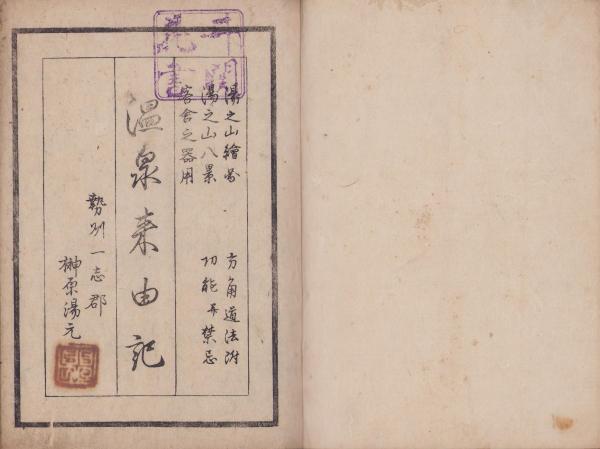 湯之山繪圖 方角道法附
湯之山八景 功能并禁忌
客舎之器用
温泉来由記
勢州一志郡
榊原湯元